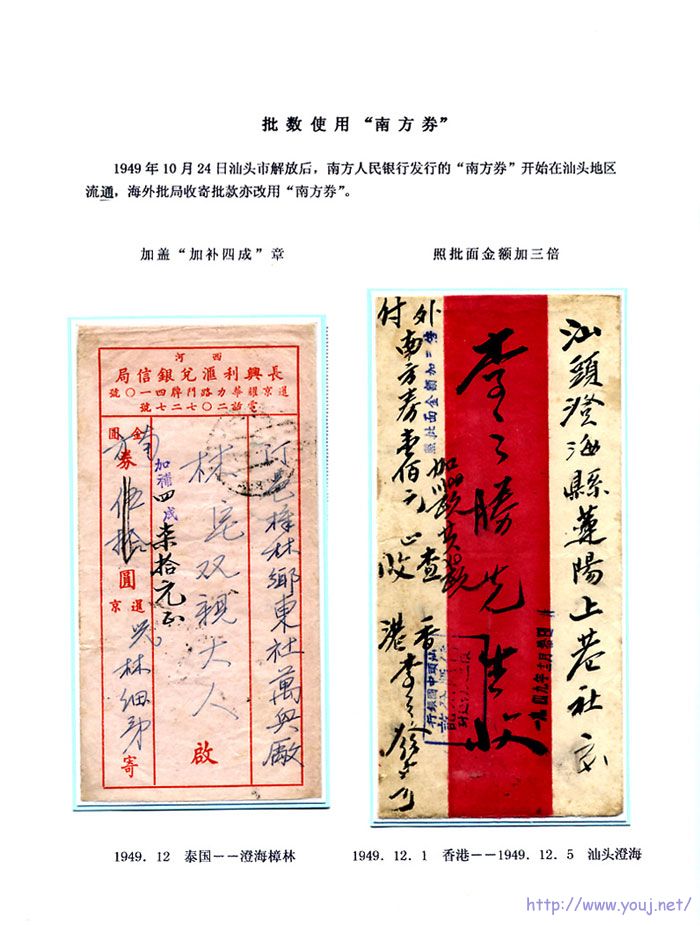 批数使用“南方券”
1949年10月24日汕头市解放后，南方人民银行发行的“南方券”开始在汕头地区
流通，海外批局收寄批款亦改用“南方券”。
加盖“加补四成”章
照批面金额加三倍
西河
長興利滙兌銀信局
暹京耀華力路門牌四一〇號
電話二〇七二七號
澄邑樟林鄉東社萬興廠
林宅双親大人
啟
加補四成
柒拾元正
金圓
南方
券伍拾圓
暹京
兄林細弟寄
汕頭澄海縣蓮陽上巷社交
李之勝先生收
一九四九年 月 日
照批面金額加三倍
外付南方券壹佰元正查收
香港李
1949．12 泰国－－澄海樟林
1949．12．1 香港－－1949．12．5 汕头澄海
http://www.youj.net/